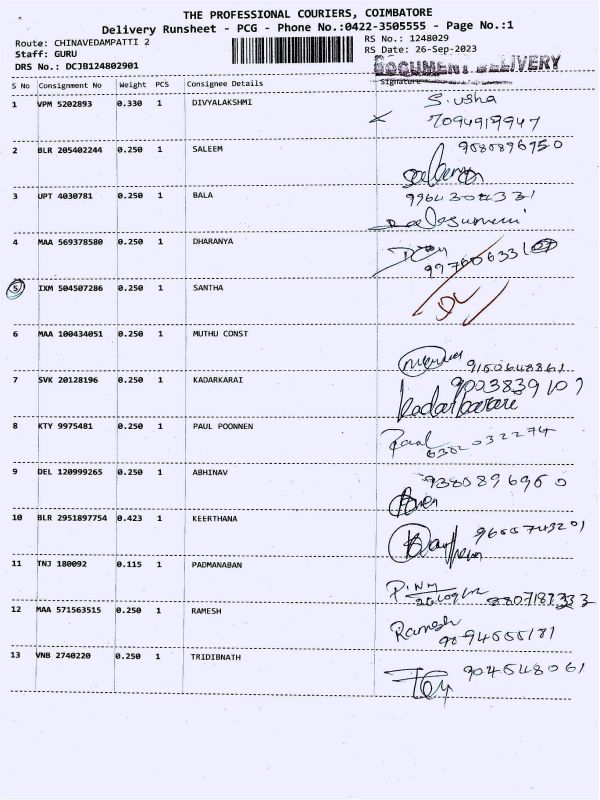 THE PROFESSIONAL COURIERS, COIMBATORE
Delivery Runsheet - PCG - Phone No.:0422-3505555 - Page No.:1
Route: CHINAVEDAMPATTI 2 RS No.: 1248029
Staff: GURU RS Date: 26-Sep-2023
DRS No.: DCJB124802901 DOCUMENT DELIVERY
S No Consignment No Weight PCS Consignee Details Signature
1 VPM 5202893 0.330 1 DIVYALAKSHMI S. usha
7094919947
2 BLR 205402244 0.250 1 SALEEM
3 UPT 4030781 0.250 1 BALA
4 MAA 569378580 0.250 1 DHARANYA
5 IXM 504507286 0.250 1 SANTHA
6 MAA 100434051 0.250 1 MUTHU CONST
9150648861
7 SVK 20128196 0.250 1 KADARKARAI 9003839107
Kadarkarai
8 KTY 9975481 0.250 1 PAUL POONNEN Paul
6382032274
9 DEL 120999265 0.250 1 ABHINAV 9380896960
10 BLR 2951897754 0.423 1 KEERTHANA
11 TNJ 180092 0.115 1 PADMANABAN
12 MAA 571563515 0.250 1 RAMESH Ramesh
13 VNB 2740220 0.250 1 TRIDIBNATH 904548061